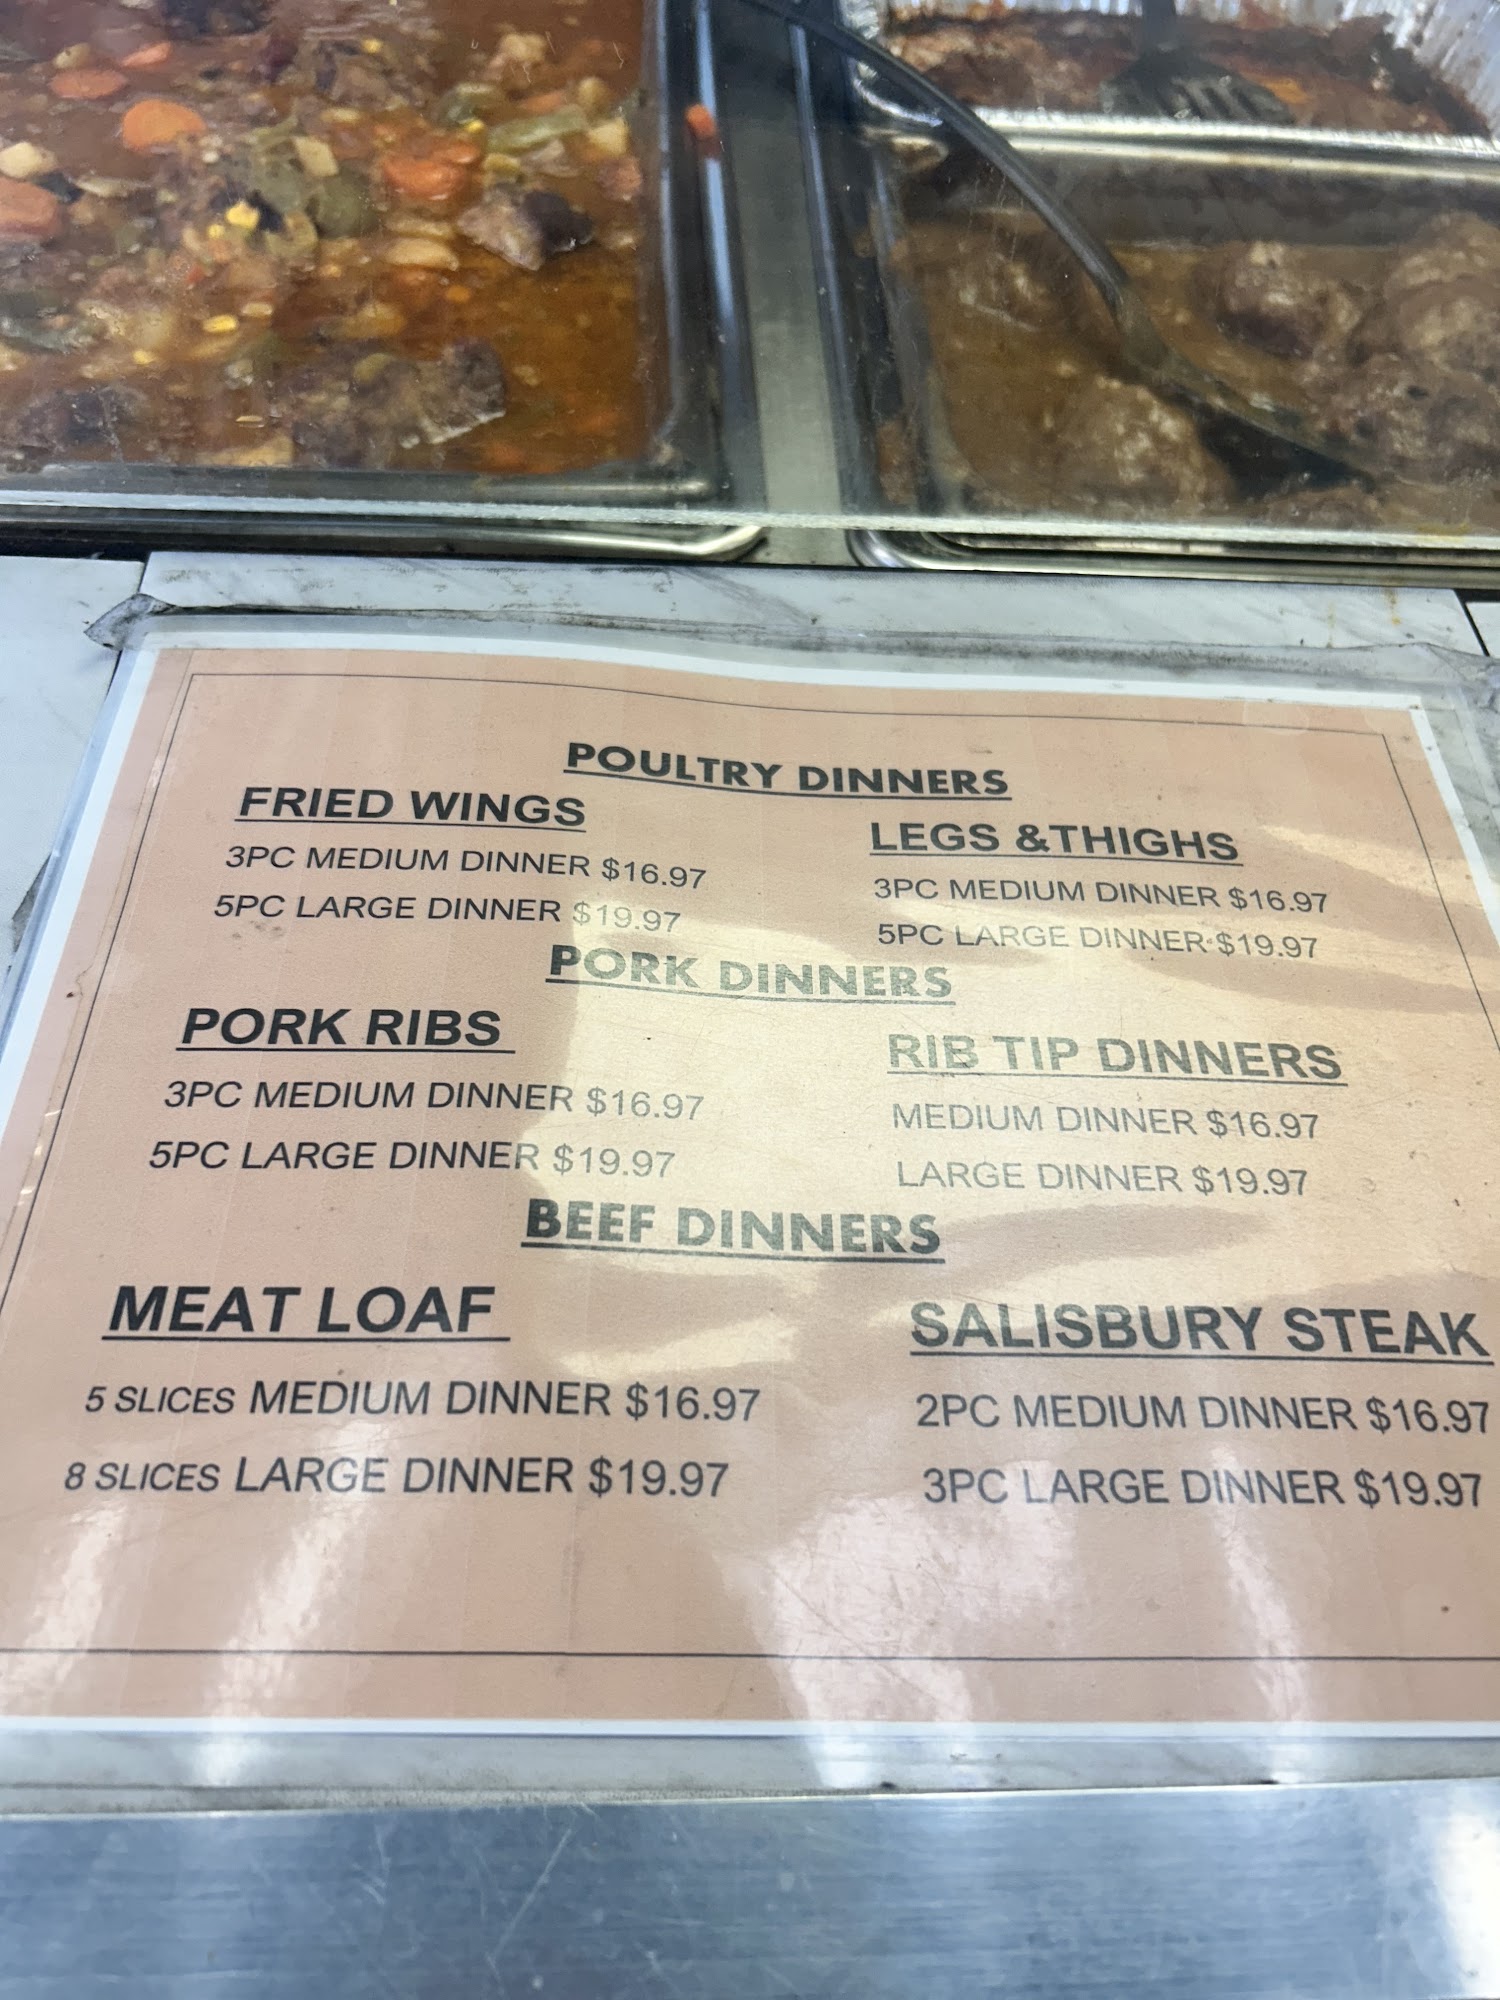 POULTRY DINNERS
FRIED WINGS
3PC MEDIUM DINNER $16.97
5PC LARGE DINNER $19.97
LEGS &THIGHS
3PC MEDIUM DINNER $16.97
5PC LARGE DINNER $19.97
PORK DINNERS
PORK RIBS
3PC MEDIUM DINNER $16.97
5PC LARGE DINNER $19.97
RIB TIP DINNERS
MEDIUM DINNER $16.97
LARGE DINNER $19.97
BEEF DINNERS
MEAT LOAF
5 SLICES MEDIUM DINNER $16.97
8 SLICES LARGE DINNER $19.97
SALISBURY STEAK
2PC MEDIUM DINNER $16.97
3PC LARGE DINNER $19.97